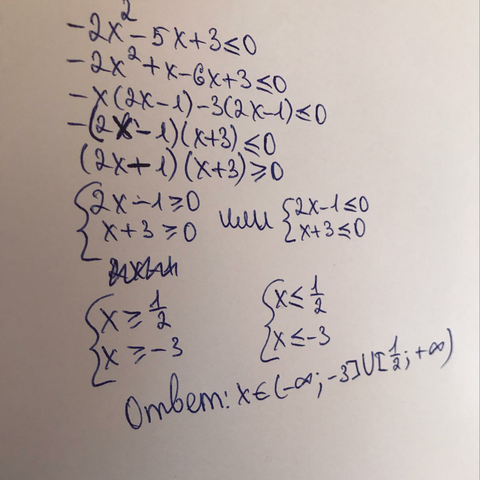 -2x²-5x+3≤0
-2x²+x-6x+3≤0
-x(2x-1)-3(2x-1)≤0
-(2x-1)(x+3)≤0
(2x+1)(x+3)≥0
{2x-1≥0 или {2x-1≤0
x+3≥0 x+3≤0
{x≥1/2 {x≤1/2
x≥-3 x≤-3
Ответ: x∈(-∞;-3]∪[1/2;+∞)